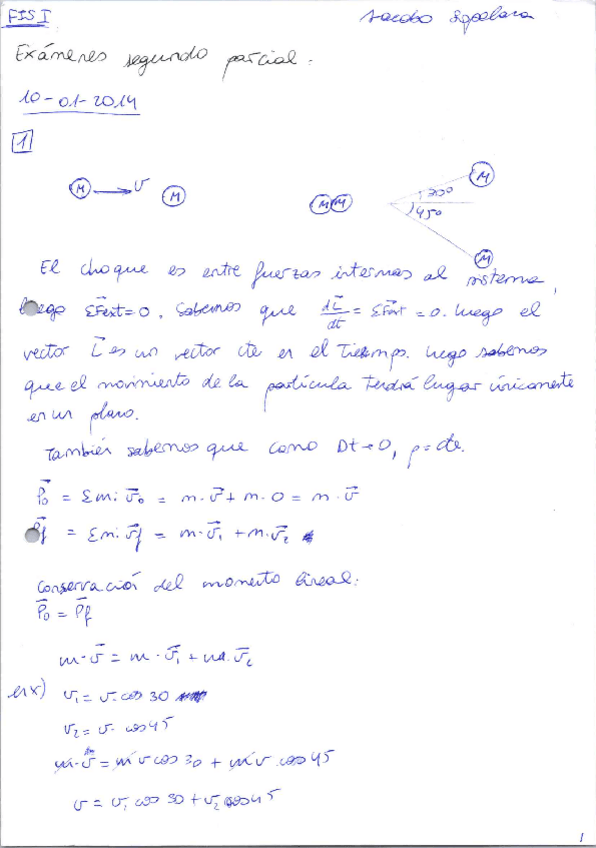 FIS I
Jacobo
Exámenes segundo parcial:
10-01-2014
1
M v M
MM
30º
45º
M
M
El choque es entre fuerzas internas al sistema,
luego ΣF⃗ext=0. Sabemos que dL⃗/dt = ΣF⃗ext = 0. luego el
vector L⃗ es un vector cte en el tiempo. luego sabemos
que el movimiento de la partícula tendrá lugar únicamente
en un plano.
También sabemos que como Dt→0, p=cte.
P⃗o = Σmi v⃗o = m·v⃗ + m·0 = m·v⃗
P⃗f = Σmi v⃗f = m·v⃗1 + m·v⃗2
Conservación del momento lineal:
P⃗o = P⃗f
m·v⃗ = m·v⃗1 + m·v⃗2
en x) v1 = v·cos 30
v2 = v· cos 45
m·v = m v cos 30 + m v cos 45
v = v1 cos 30 + v2 cos 45
1